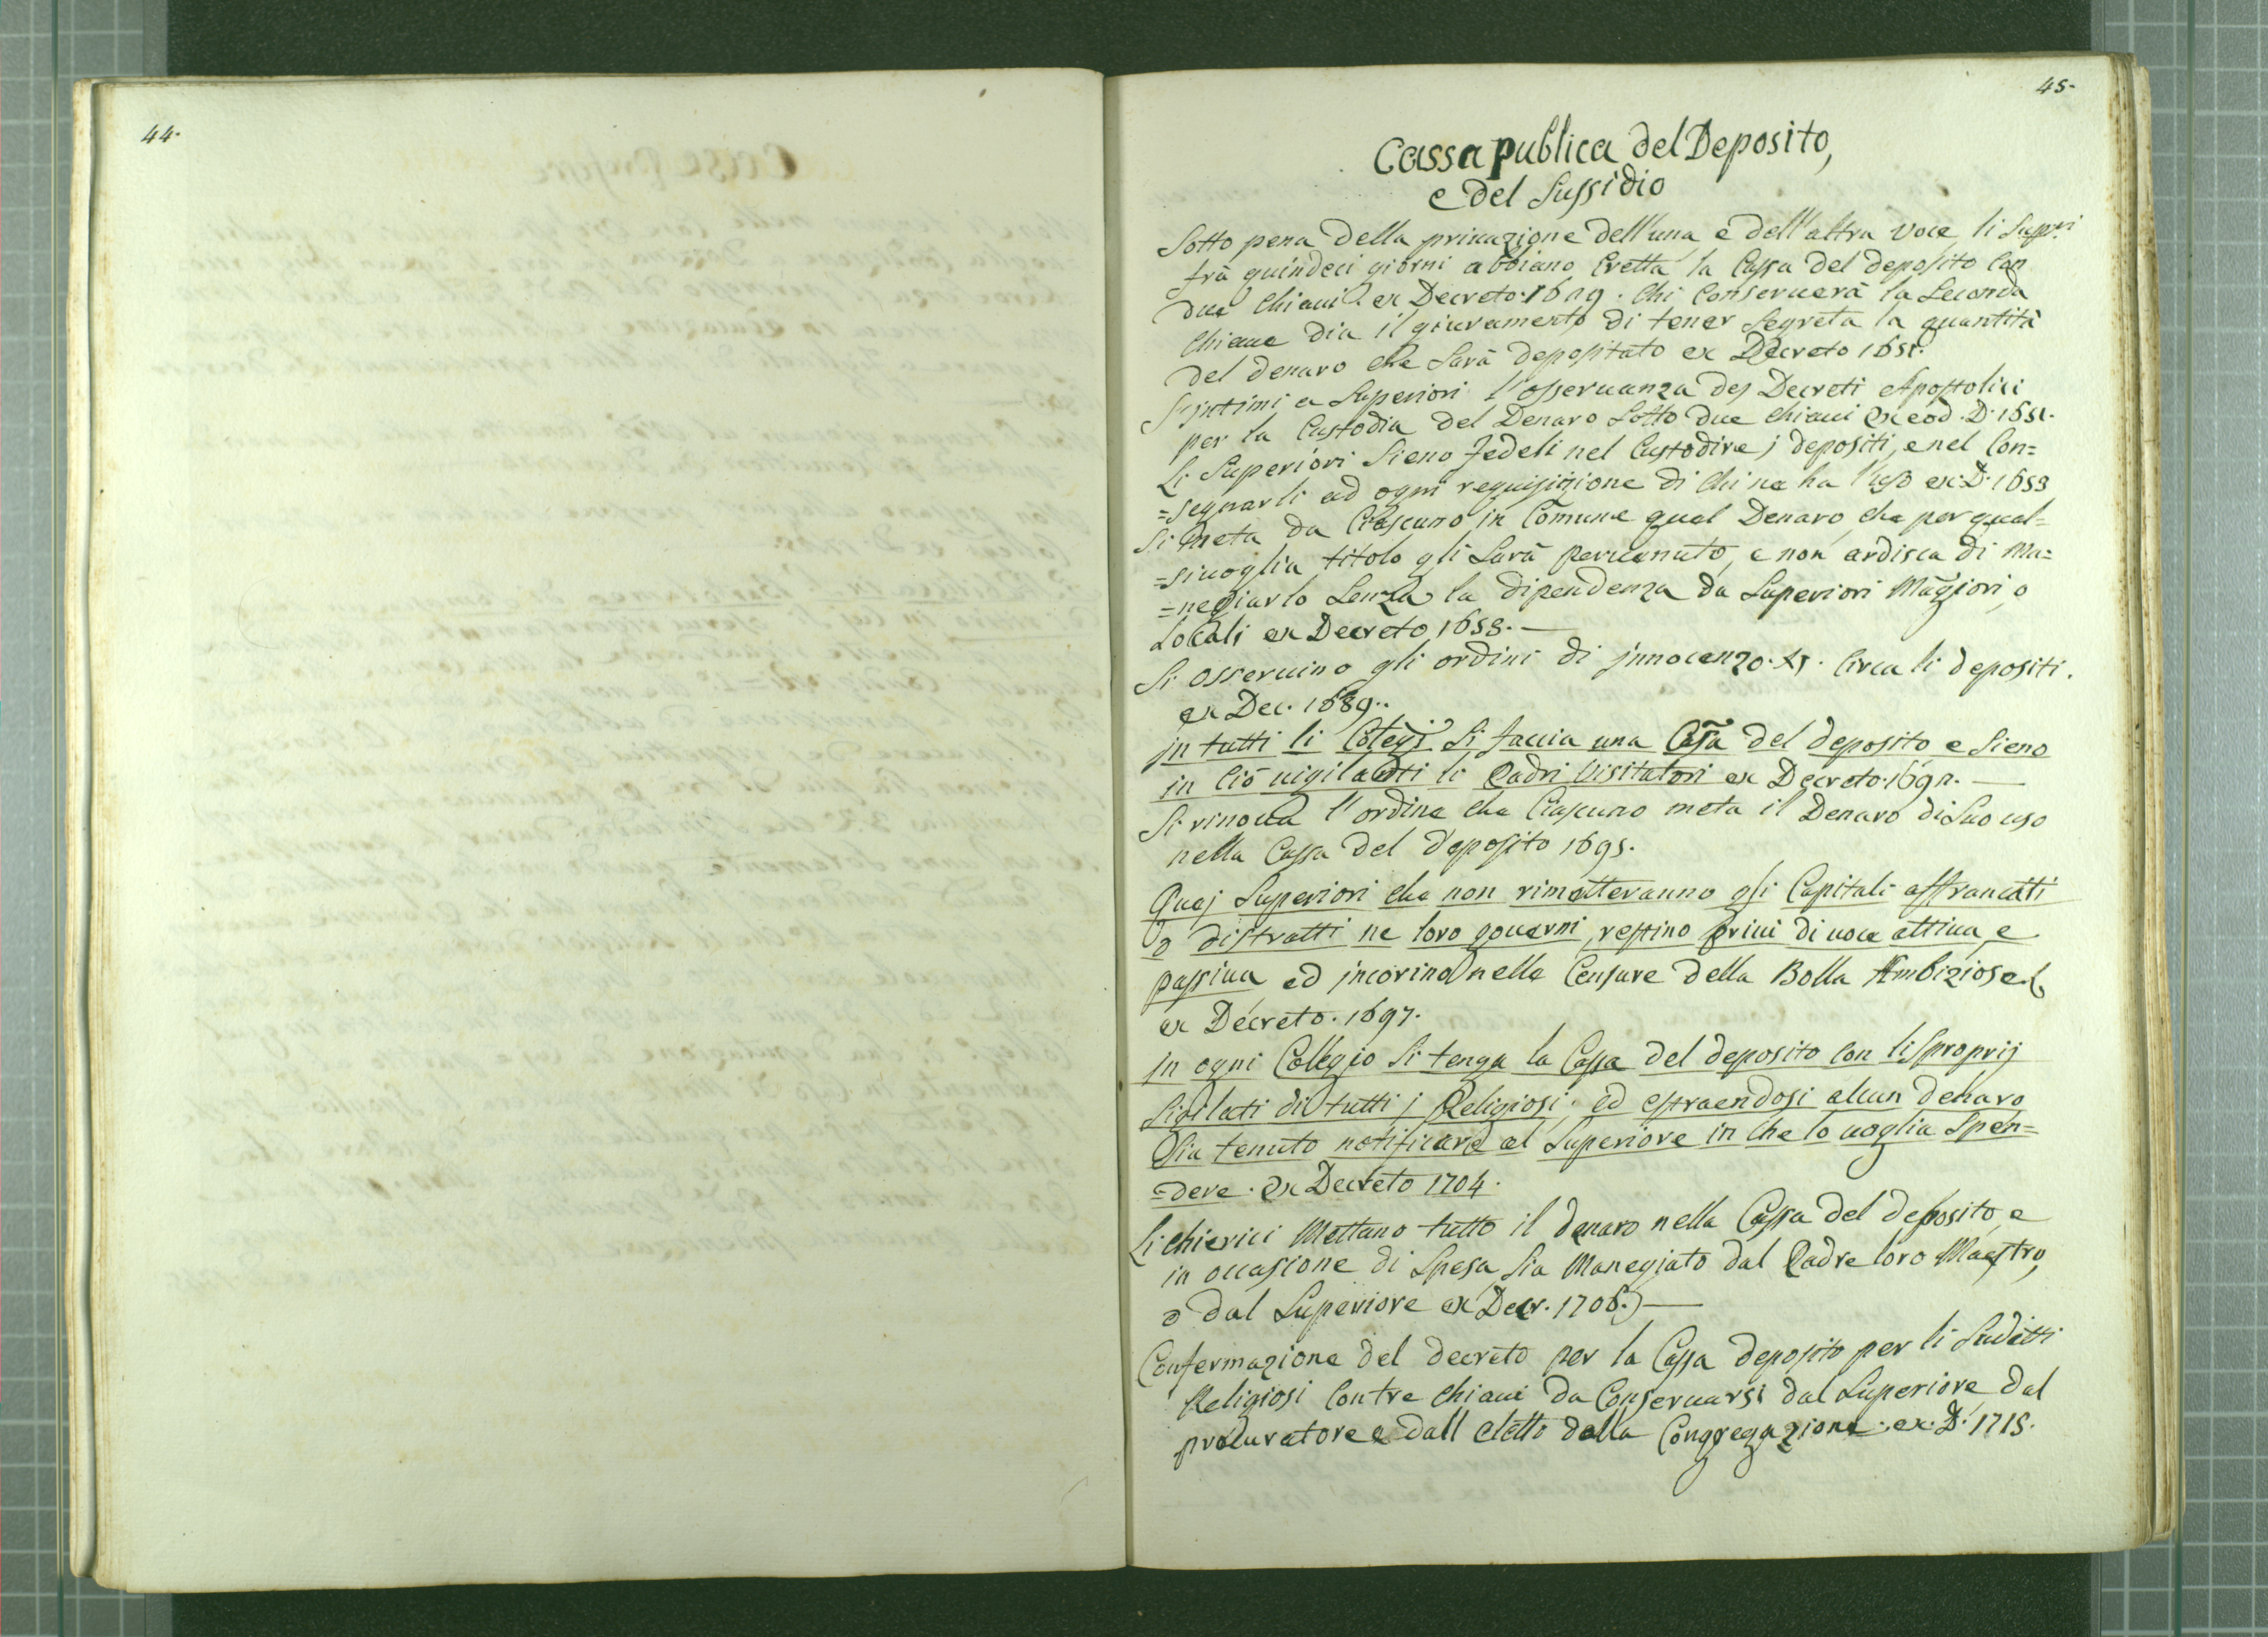 44.
45.
Cassa publica del Deposito,
e del Sussidio
Sotto pena della privazione dell'una e dell'altra voce li Supri
frà quindeci giorni abbiano eretta la Cassa del deposito con
due Chiaui ex Decreto 1629. Chi Conseruerà la Seconda
Chiaue dia il giuramento di tener Segreta la quantità
del denaro che Sarà depositato ex Decreto 1651.
S'intimi a Superiori l'osseruanza dej Decreti Apostolici
per la Custodia del Denaro Sotto due chiaui ex eod. D. 1651.
Li Superiori Sieno fedeli nel Custodire j depositi, e nel Con=
=segnarli ad ogni requisizione di chi ne ha l'uso ex D. 1658
Si meta da Ciascuno in Comune qual Denaro, che per qual=
=siuoglia titolo gli Sarà peruenuto, e non ardisca di Ma=
=negiarlo Senza la dipendenza da Superiori Magiori, o
Locali ex Decreto 1658.
Si osseruino gli ordini di jnnocenzo XI. Circa li depositi.
ex Dec. 1689.
jn tutti li Colegi Si faccia una Casa del deposito e Sieno
in Ciò uigilanti li Padri Visitatori ex Decreto 1692.
Si rinoua l'ordine che Ciascuno meta il Denaro di Suo uso
nella Cassa del deposito 1695.
Quej Superiori che non rimetteranno gli Capitali affrancati
o distratti ne loro gouerni, restino priui di uoce attiua, e
passiua ed jncorino nelle Censure della Bolla Ambiziose
ex Decreto. 1697.
jn ogni Collegio Si tenga la Cassa del deposito con li Sproprij
Sigilati di tutti j Religiosi; ed estraendosi alcun denaro
Sia tenuto notificare al Superiore in che lo uoglia Spen=
=dere. ex Decreto 1704.
Li chierici Mettano tutto il denaro nella Cassa del deposito, e
in occasione di Spesa Sia Manegiato dal Padre loro Maestro,
o dal Superiore ex Decr. 1706.
Confermazione del decreto per la Cassa deposito per li Sudetti
Religiosi Con tre chiaui da Conseruarsi dal Superiore dal
procuratore e dall eletto dalla Congregazione. ex. D. 1715.